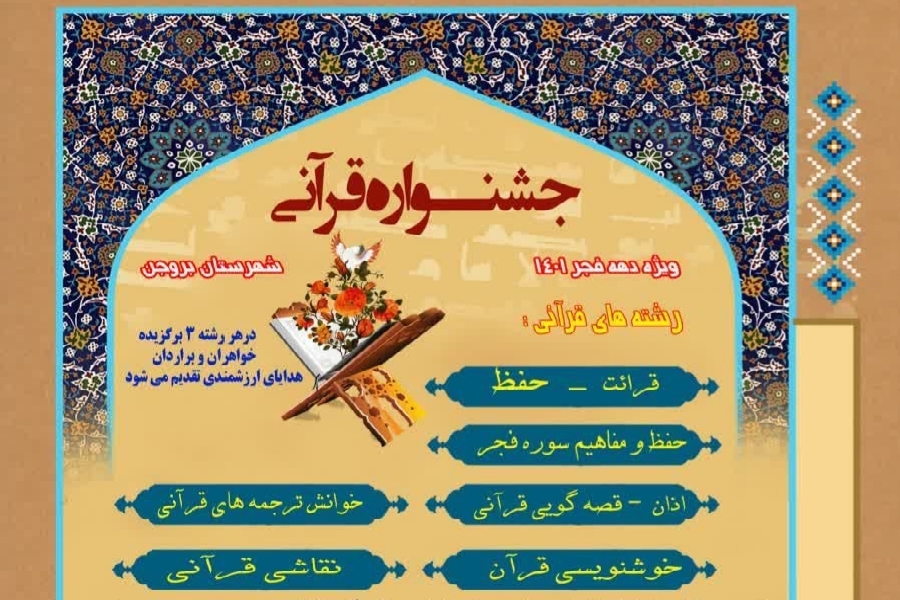 جشنواره قرآنی
ویژه دهه فجر ۱۴۰۱
شهرستان بروجن
رشته های قرآنی :
درهر رشته ۳ برگزیده
خواهران و برادران
هدایای ارزشمندی تقدیم می شود
قرائت _ حفظ
حفظ و مفاهیم سوره فجر
اذان - قصه گویی قرآنی
خوانش ترجمه های قرآنی
خوشنویسی قرآن
نقاشی قرآنی